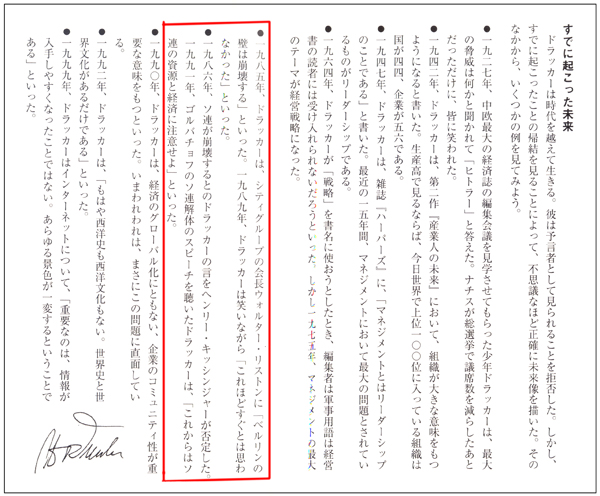 すでに起こった未来
　ドラッカーは時代を越えて生きる。彼は予言者として見られることを拒否した。しかし、
すでに起こったことの帰結を見ることによって、不思議なほど正確に未来像を描いた。その
なかから、いくつかの例を見てみよう。
●一九二七年、中欧最大の経済誌の編集会議を見学させてもらった少年ドラッカーは、最大
の脅威は何かと聞かれて「ヒトラー」と答えた。ナチスが総選挙で議席数を減らしたあと
だっただけに、皆に笑われた。
●一九四二年、ドラッカーは、第二作『産業人の未来』において、組織が大きな意味をもつ
ようになると書いた。生産高で見るならば、今日世界で上位一〇〇位に入っている組織は
国が四四、企業が五六である。
●一九四七年、ドラッカーは、雑誌『ハーパーズ』に、「マネジメントとはリーダーシップ
のことである」と書いた。最近の二五年間、マネジメントにおいて最大の問題とされてい
るものがリーダーシップである。
●一九六四年、ドラッカーが「戦略」を書名に使おうとしたとき、編集者は軍事用語は経営
書の読者には受け入れられないだろうといった。しかし一九七五年、マネジメントの最大
のテーマが経営戦略になった。
●一九八五年、ドラッカーは、シティグループの会長ウォルター・リストンに「ベルリンの
壁は崩壊する」といった。一九八九年、ドラッカーは笑いながら「これほどすぐとは思わ
なかった」といった。
●一九八六年、ソ連が崩壊するとのドラッカーの言をヘンリー・キッシンジャーが否定した。
一九九一年、ゴルバチョフのソ連解体のスピーチを聴いたドラッカーは、「これからはソ
連の資源と経済に注意せよ」といった。
●一九九〇年、ドラッカーは、経済のグローバル化にともない、企業のコミュニティ性が重
要な意味をもつといった。いまわれわれは、まさにこの問題に直面してい
る。
●一九九二年、ドラッカーは、「もはや西洋史も西洋文化もない。世界史と世
界文化があるだけである」といった。
●一九九九年、ドラッカーはインターネットについて、「重要なのは、情報が
入手しやすくなったことではない。あらゆる景色が一変するということで
ある」といった。